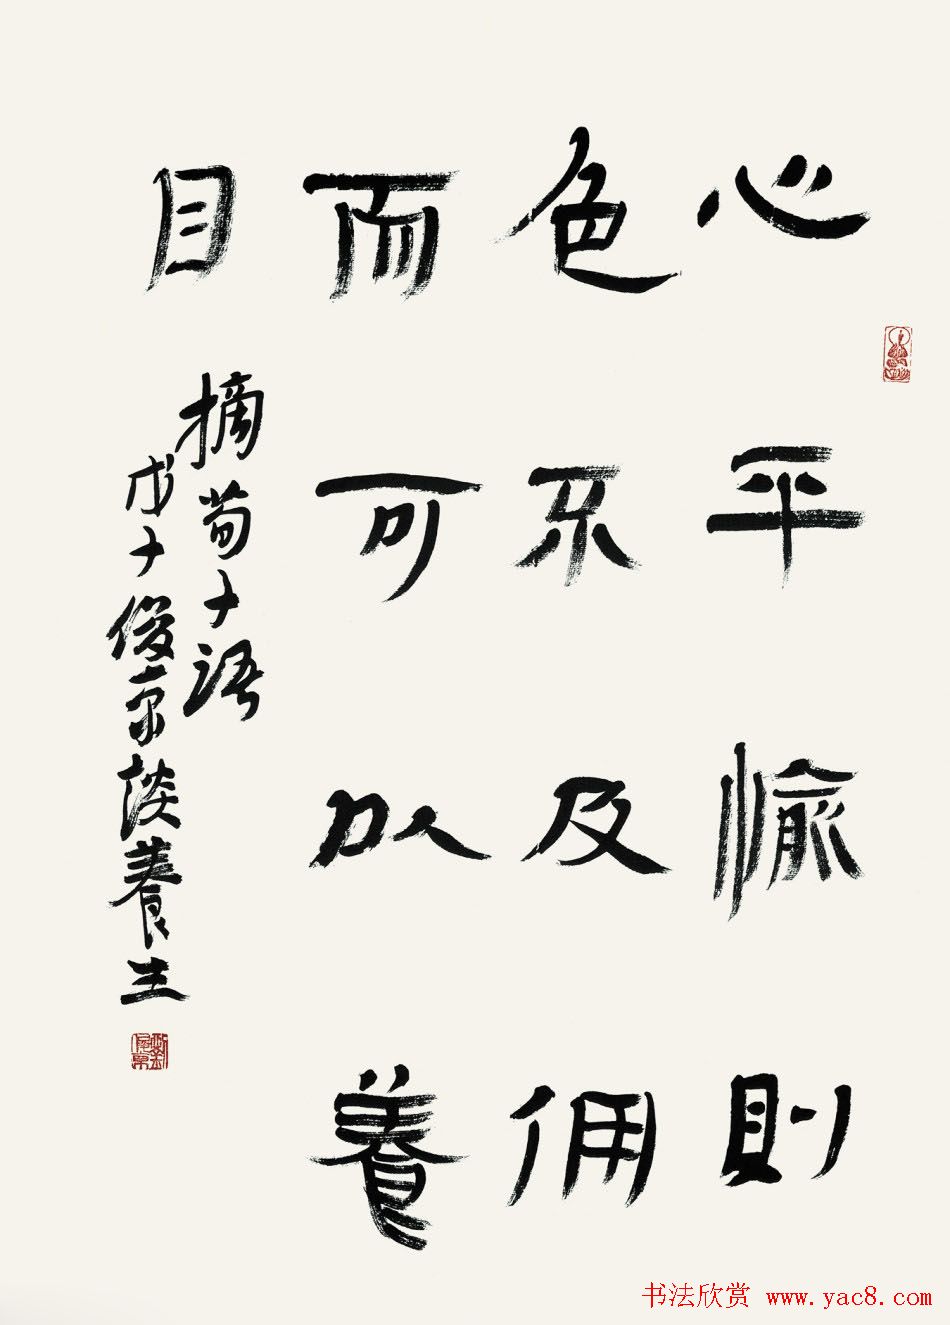 心平愉則
色不及佣
而可以養
目
摘荀子語
戊子俊京談養生
劉俊京
书法欣赏 www.yac8.com